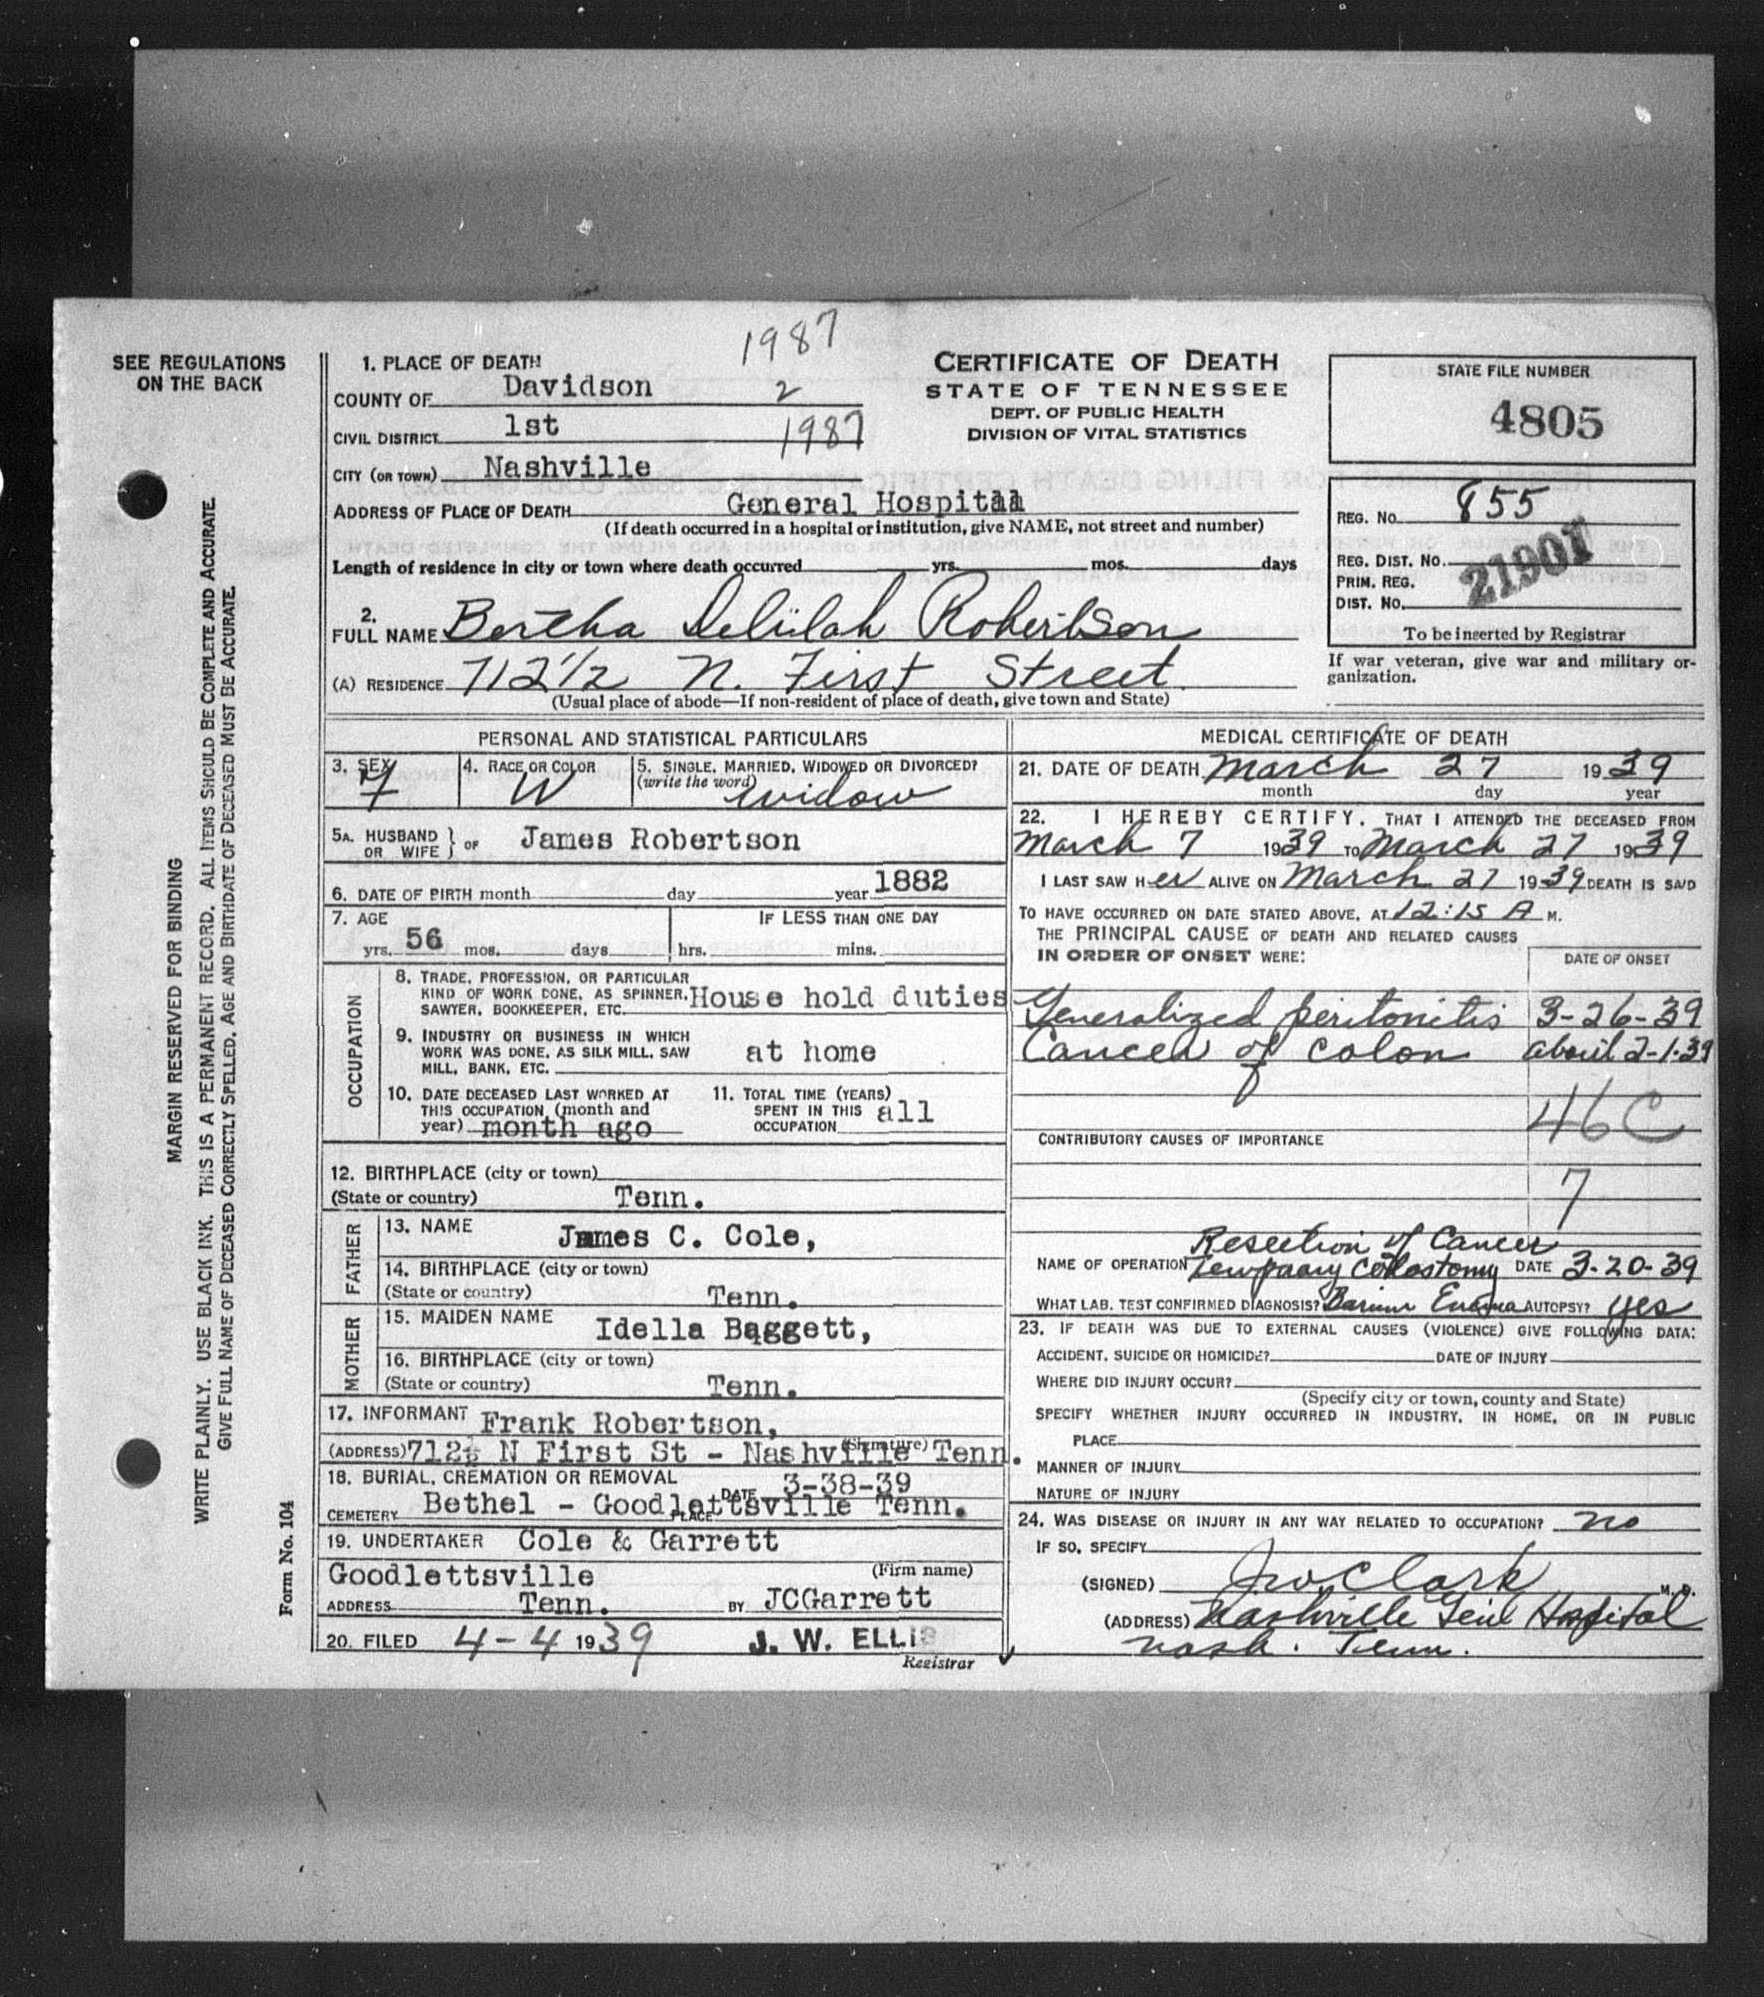 SEE REGULATIONS
ON THE BACK
MARGIN RESERVED FOR BINDING
WRITE PLAINLY. USE BLACK INK. THIS IS A PERMANENT RECORD. ALL ITEMS SHOULD BE COMPLETE AND ACCURATE.
GIVE FULL NAME OF DECEASED CORRECTLY SPELLED. AGE AND BIRTHDATE OF DECEASED MUST BE ACCURATE.
Form No. 104
1987
1. PLACE OF DEATH
COUNTY OF Davidson 2
CIVIL DISTRICT 1st 1987
CITY (OR TOWN) Nashville
ADDRESS OF PLACE OF DEATH General Hospital
(If death occurred in a hospital or institution, give NAME, not street and number)
Length of residence in city or town where death occurred yrs. mos. days
CERTIFICATE OF DEATH
STATE OF TENNESSEE
DEPT. OF PUBLIC HEALTH
DIVISION OF VITAL STATISTICS
STATE FILE NUMBER
4805
REG. NO. 855
REG. DIST. NO. 21901
PRIM. REG.
DIST. NO.
To be inserted by Registrar
If war veteran, give war and military or-
ganization.
2.
FULL NAME Bertha Delilah Robertson
(A) RESIDENCE 712½ N. First Street
(Usual place of abode—If non-resident of place of death, give town and State)
PERSONAL AND STATISTICAL PARTICULARS
3. SEX F 4. RACE OR COLOR W 5. SINGLE, MARRIED, WIDOWED OR DIVORCED?
(write the word) widow
5A. HUSBAND OR WIFE } OF James Robertson
6. DATE OF BIRTH month day year 1882
7. AGE IF LESS THAN ONE DAY
yrs. 56 mos. days hrs. mins.
OCCUPATION
8. TRADE, PROFESSION, OR PARTICULAR
KIND OF WORK DONE, AS SPINNER, House hold duties
SAWYER, BOOKKEEPER, ETC.
9. INDUSTRY OR BUSINESS IN WHICH
WORK WAS DONE, AS SILK MILL, SAW at home
MILL, BANK, ETC.
10. DATE DECEASED LAST WORKED AT
THIS OCCUPATION (month and
year) month ago
11. TOTAL TIME (YEARS)
SPENT IN THIS all
OCCUPATION
12. BIRTHPLACE (city or town)
(State or country) Tenn.
FATHER
13. NAME James C. Cole,
14. BIRTHPLACE (city or town)
(State or country) Tenn.
MOTHER
15. MAIDEN NAME Idella Baggett,
16. BIRTHPLACE (city or town)
(State or country) Tenn.
17. INFORMANT Frank Robertson,
(Signature)
(ADDRESS) 712½ N First St - Nashville Tenn.
18. BURIAL, CREMATION OR REMOVAL
DATE 3-38-39
CEMETERY Bethel - PLACE Goodlettsville Tenn.
19. UNDERTAKER Cole & Garrett
Goodlettsville (Firm name)
ADDRESS Tenn. BY JCGarrett
20. FILED 4-4 1939 J. W. ELLIS
Registrar
MEDICAL CERTIFICATE OF DEATH
21. DATE OF DEATH March 27 1939
month day year
22. I HEREBY CERTIFY, THAT I ATTENDED THE DECEASED FROM
March 7 1939 TO March 27 1939
I LAST SAW HER ALIVE ON March 27 1939 DEATH IS SAID
TO HAVE OCCURRED ON DATE STATED ABOVE, AT 12:15 A M.
THE PRINCIPAL CAUSE OF DEATH AND RELATED CAUSES
IN ORDER OF ONSET WERE: DATE OF ONSET
Generalized peritonitis 3-26-39
Cancer of colon about 2-1-39
46C
CONTRIBUTORY CAUSES OF IMPORTANCE
7
Resection of Cancer
NAME OF OPERATION Tempoary Colostomy DATE 3-20-39
WHAT LAB. TEST CONFIRMED DIAGNOSIS? Barium Enema AUTOPSY? yes
23. IF DEATH WAS DUE TO EXTERNAL CAUSES (VIOLENCE) GIVE FOLLOWING DATA:
ACCIDENT, SUICIDE OR HOMICIDE? DATE OF INJURY
WHERE DID INJURY OCCUR?
(Specify city or town, county and State)
SPECIFY WHETHER INJURY OCCURRED IN INDUSTRY, IN HOME, OR IN PUBLIC
PLACE
MANNER OF INJURY
NATURE OF INJURY
24. WAS DISEASE OR INJURY IN ANY WAY RELATED TO OCCUPATION? no
IF SO, SPECIFY
(SIGNED) JW Clark M. D.
(ADDRESS) Nashville Genl Hospital
Nash. Tenn.